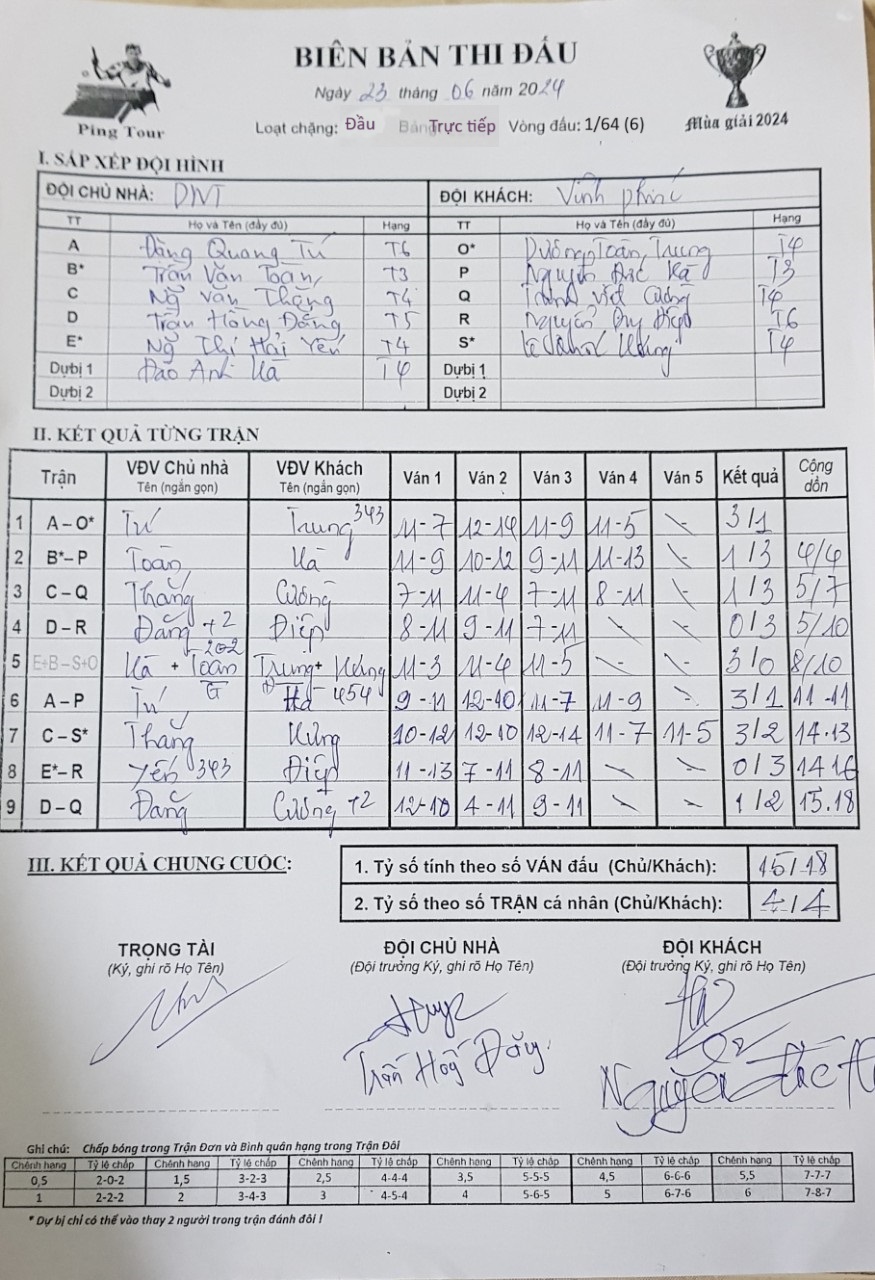 BIÊN BẢN THI ĐẤU
Ngày 23 tháng 06 năm 2024
Ping Tour
Loạt chặng: Đầu Bảng Trực tiếp Vòng đấu: 1/64 (6)
Mùa giải 2024
I. SẮP XẾP ĐỘI HÌNH
ĐỘI CHỦ NHÀ: DNT ĐỘI KHÁCH: Vĩnh phúc
TT Họ và Tên (đầy đủ) Hạng TT Họ và Tên (đầy đủ) Hạng
A Đặng Quang Tú T6 O* Dương Toàn Trung T4
B* Trần Văn Toàn T3 P Nguyễn Đắc Hà T3
C Ng Văn Thắng T4 Q Việt Cường T4
D Trần Hồng Đăng T5 R Nguyễn Điệp T6
E* Ng Thị Hải Yến T4 S* T4
Dự bị 1 Đào Anh Hà T4 Dự bị 1
Dự bị 2 Dự bị 2
II. KẾT QUẢ TỪNG TRẬN
Trận VĐV Chủ nhà Tên (ngắn gọn) VĐV Khách Tên (ngắn gọn) Ván 1 Ván 2 Ván 3 Ván 4 Ván 5 Kết quả Cộng dồn
1 A – O* Tú Trung 343 11-7 12-14 11-9 11-5 3/1
2 B*– P Toàn Hà 11-9 10-12 9-11 11-13 1/3 4/4
3 C – Q Thắng Cường 7-11 11-4 7-11 8-11 1/3 5/7
4 D – R Đăng +2 Điệp 8-11 9-11 7-11 0/3 5/10
5 E+B – S+O Hà + Toàn 202 Trung + 11-3 11-4 11-5 3/0 8/10
6 A – P Tú Hà 454 9-11 12-10 11-7 11-9 3/1 11-11
7 C – S* Thắng 10-12 12-10 12-14 11-7 11-5 3/2 14-13
8 E*– R Yến 343 Điệp 11-13 7-11 8-11 0/3 14 16
9 D – Q Đăng Cường +2 12-10 4-11 9-11 1/2 15.18
III. KẾT QUẢ CHUNG CUỘC:
1. Tỷ số tính theo số VÁN đấu (Chủ/Khách): 15/18
2. Tỷ số theo số TRẬN cá nhân (Chủ/Khách): 4/4
TRỌNG TÀI ĐỘI CHỦ NHÀ ĐỘI KHÁCH
(Ký, ghi rõ Họ Tên) (Đội trưởng Ký, ghi rõ Họ Tên) (Đội trưởng Ký, ghi rõ Họ Tên)
Trần Hồng Đăng
Nguyễn Đắc
Ghi chú: Chấp bóng trong Trận Đơn và Bình quân hạng trong Trận Đôi
Chênh hạng Tỷ lệ chấp Chênh hạng Tỷ lệ chấp Chênh hạng Tỷ lệ chấp Chênh hạng Tỷ lệ chấp Chênh hạng Tỷ lệ chấp Chênh hạng Tỷ lệ chấp
0,5 2-0-2 1,5 3-2-3 2,5 4-4-4 3,5 5-5-5 4,5 6-6-6 5,5 7-7-7
1 2-2-2 2 3-4-3 3 4-5-4 4 5-6-5 5 6-7-6 6 7-8-7
* Dự bị chỉ có thể vào thay 2 người trong trận đánh đôi !